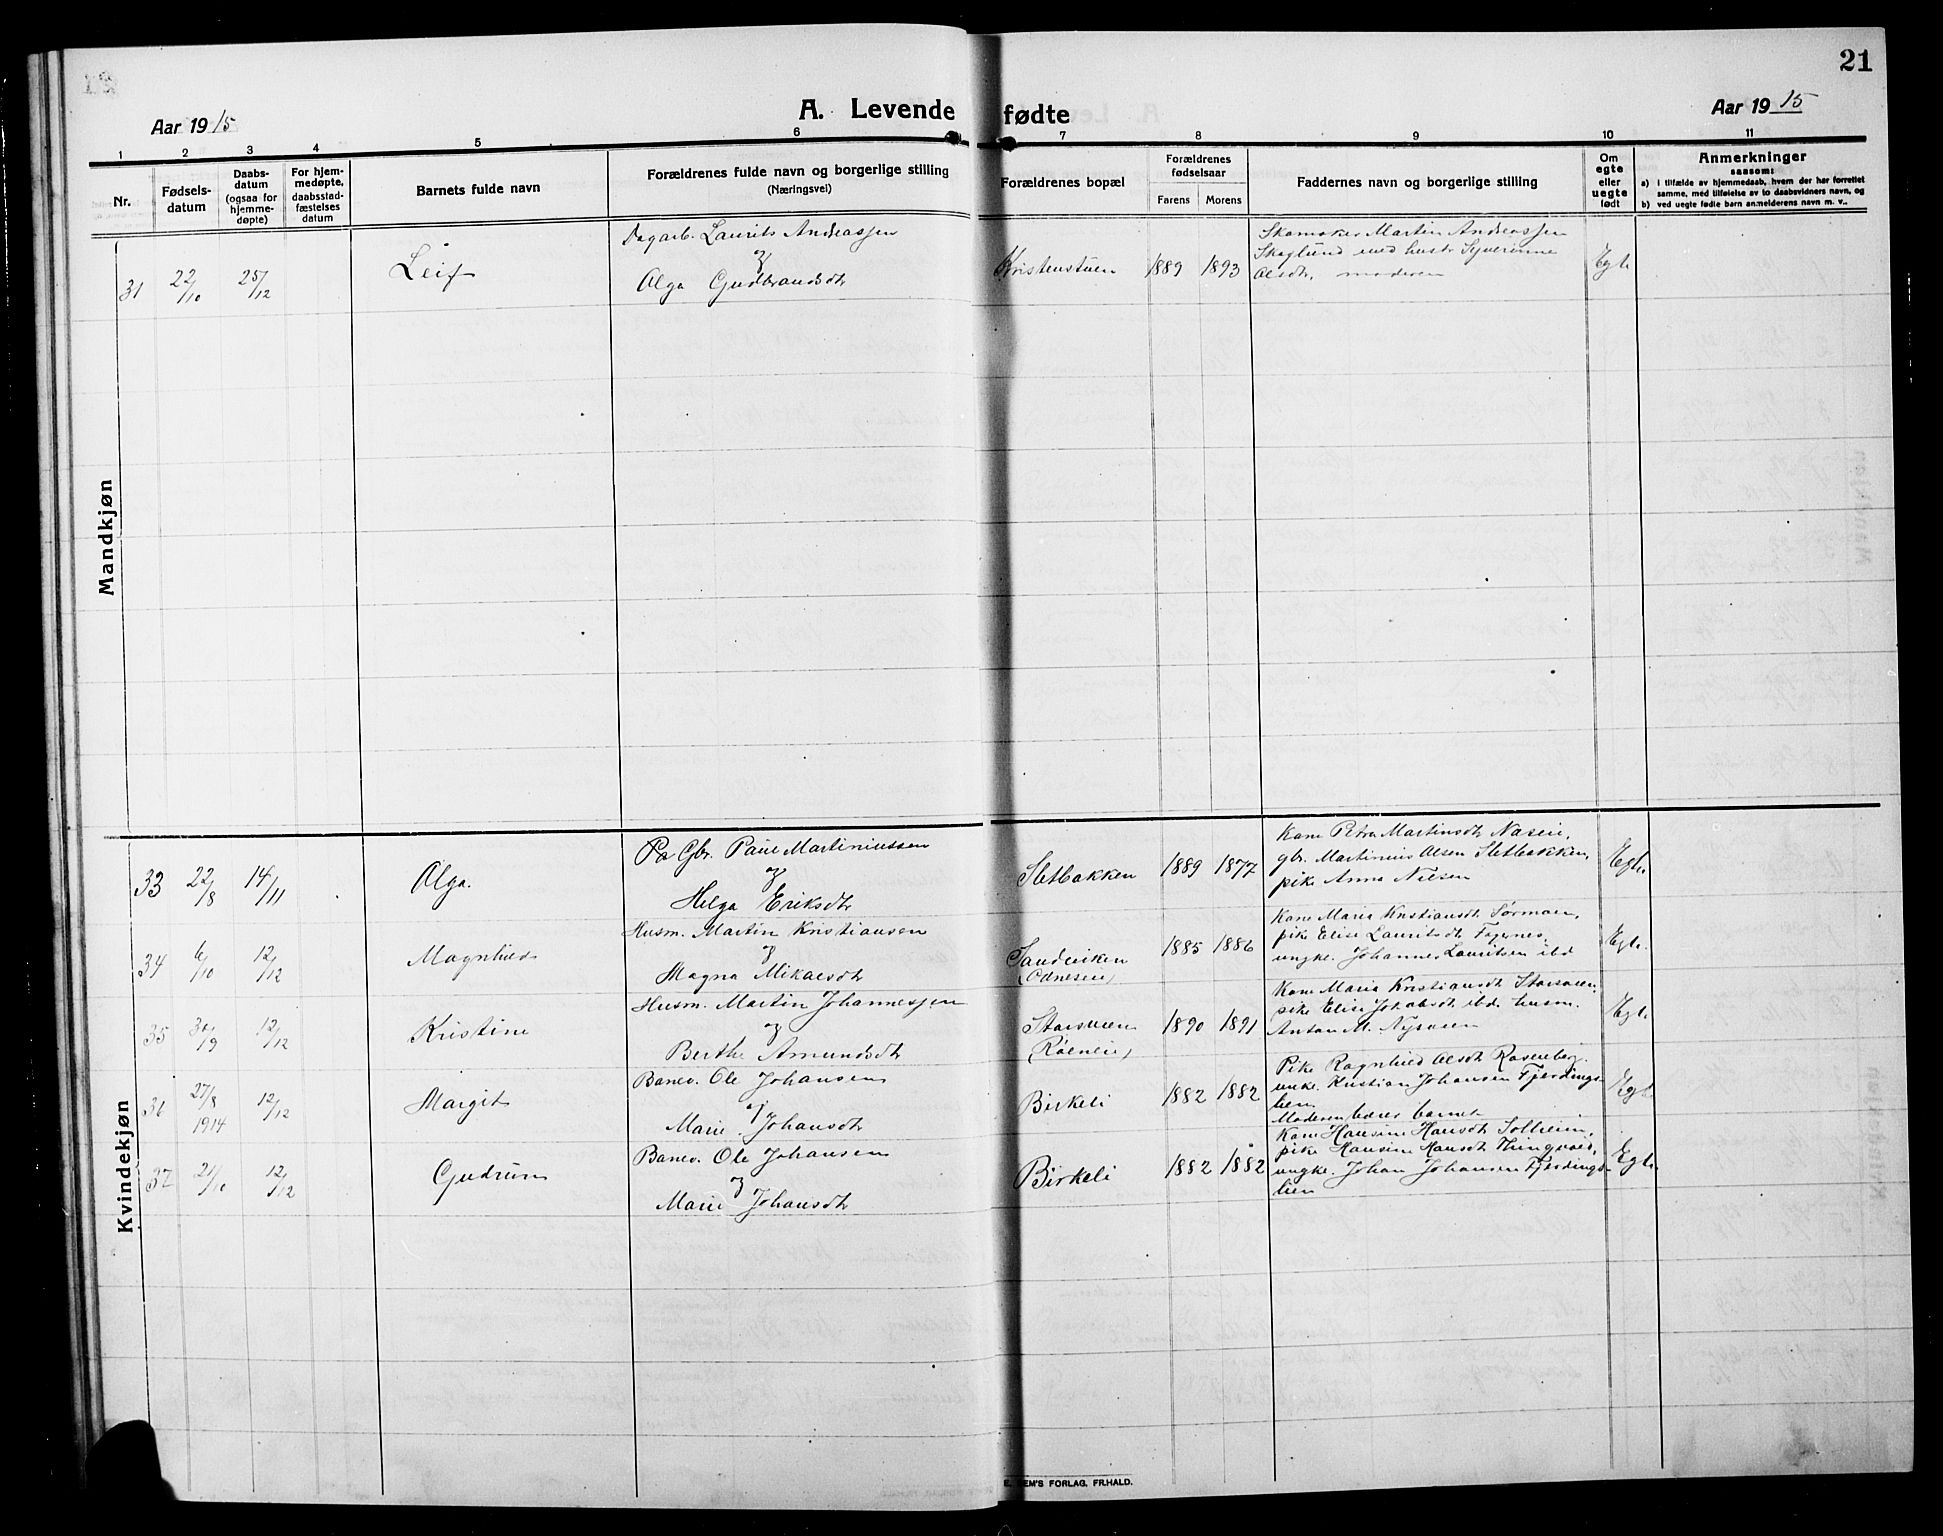 21
Aar 1915
A. Levende fødte
Aar 1915
1 2 3 4 5 6 7 8 9 10 11
Nr.
Fødsels-
datum
Daabs-
datum
(ogsaa for
hjemme-
døpte)
For hjem-
medøpte,
daabsstad-
fæstelses
datum
Barnets fulde navn
Forældrenes fulde navn og borgerlige stilling
(Næringsvei)
Forældrenes bopæl
Forældrenes
fødselsaar
Farens Morens
Faddernes navn og borgerlige stilling
Om
egte
eller
uegte
født
Anmerkninger
saasom:
a) i tilfælde av hjemmedaab, hvem der har forrettet
samme, med tilføielse av to daabsvidners navn, og
b) ved uegte fødte barn anmelderens navn m. v..
Mandkjøn
31 22/10 25/12 Leif
Dagarb. Laurits Andreassen
og
Olga Gudbrandsdt
Kristenstuen 1889 1893
Skomaker Martin Andreassen
Skoglund med hustr Syverinne
Olsdt, moderen
Egte
Kvindekjøn
33 22/8 14/11 Olga.
Gbr. Paul Martiniussen
og
Helga Eriksdt
Sletbakken 1889 1877
Kone Petra Martinsdt Naseie,
gbr. Martinius Olsen Sletbakken,
pike Anna Nilsen
Egte.
34 6/10 12/12 Magnhild
Husm. Martin Kristiansen
og
Magna Mikalsdt
Sandviken
(Odneseie) 1885 1886
Kone Maria Kristiansdt Sørmoen,
pike Elise Lauritsdt Fagernes,
ungk. Johannes Lauritsen ibd
Egte.
35 30/9 12/12 Kristine
Husm. Martin Johannessen
og
Berthe Amundsdt
(Røeneie) 1890 1891
Kone Maria Kristiansdt
pike Elise Jakobsdt ibd. husm.
Anton M. Nysveen
Egte.
36 27/8 1914 12/12 Margit
Banev. Ole Johansen
og
Marie Johansdt
Birkeli 1882 1882
Pike Ragnhild Olsdt Rosenberg.
ungk. Kristian Johansen Fjerdings-
lien
Moderen bærer barnet
Egte
37 21/10 12/12 Gudrun
Banev. Ole Johansen
og
Marie Johansdt
Birkeli 1882 1882
Kone Hansine Hansdt Solheim,
pike Hansine Hansdt Thingvold,
ungk. Johan Johansen Fjerdings-
lien
Egte.
EM'S FORLAG, FR.HALD.